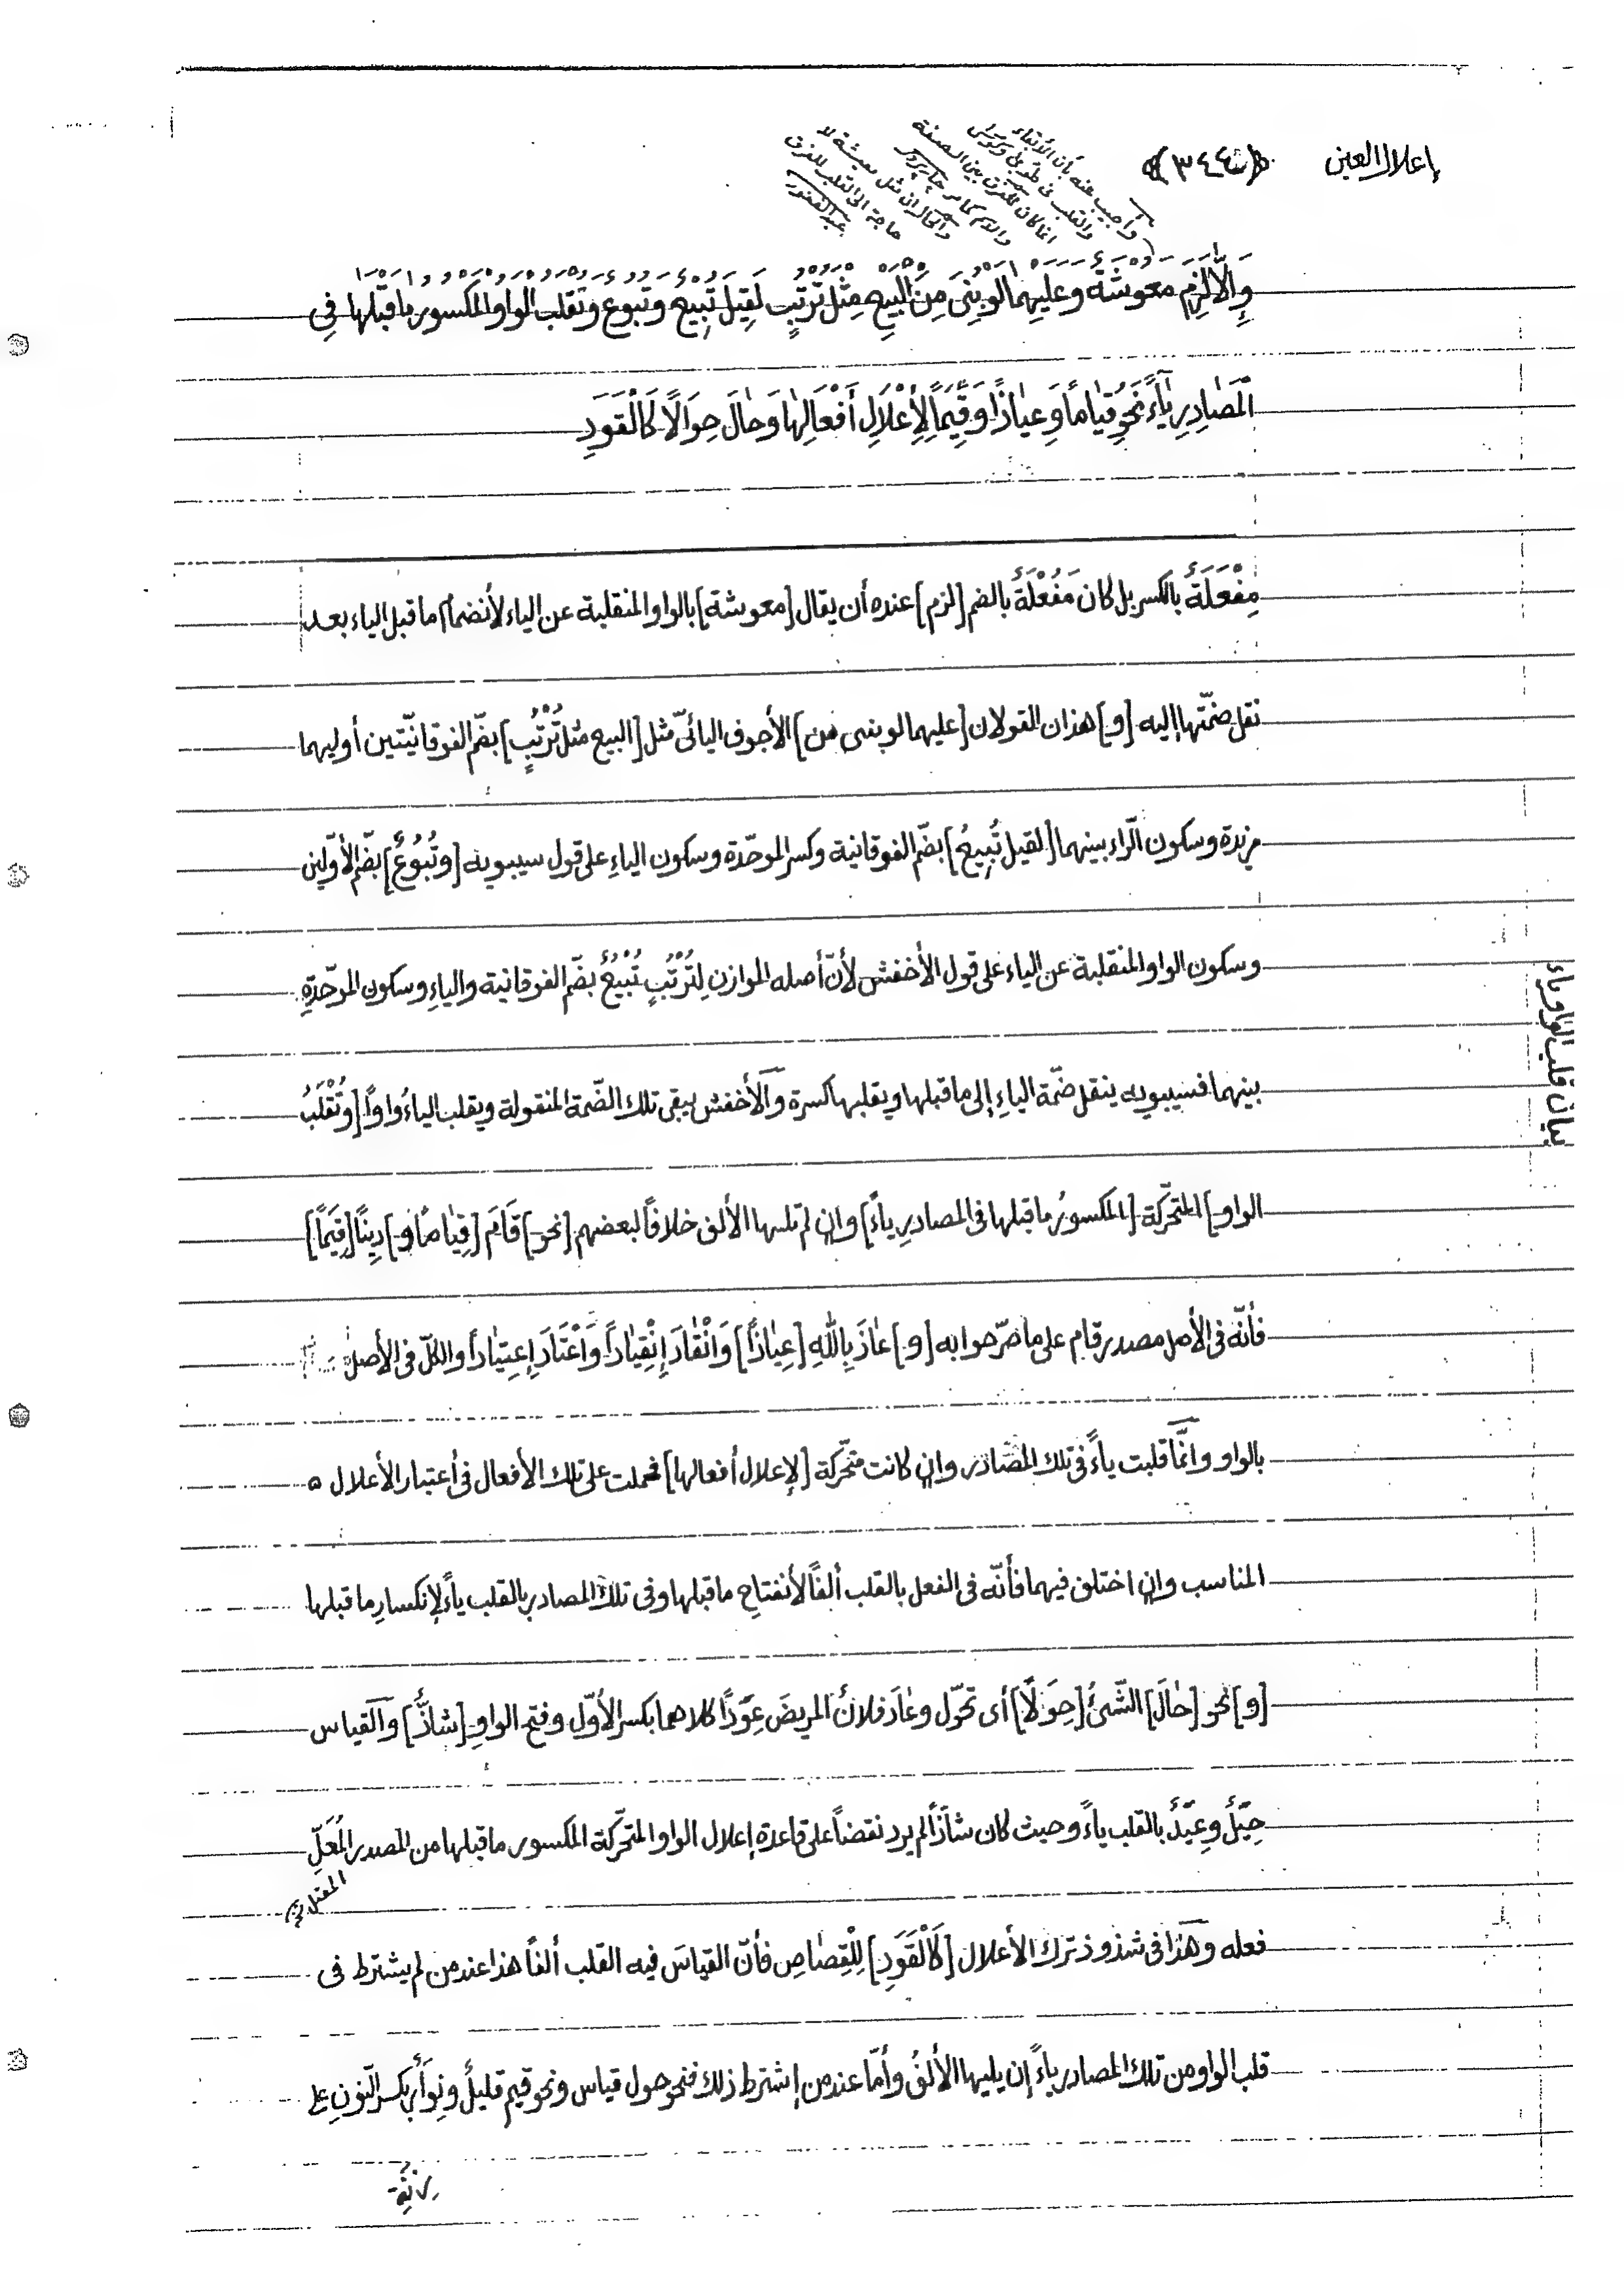 إعلال العين ﴿٣٤٤﴾
وأجيب عنه بأن الأنقباء
والقلب فى طوبى وكوسى
انما كان للفرق بين الصفة
والاسم كما مر
والحال ان مثل معيشة لا
حاجة الى القلب للفرق
عبد الغفور
وَإِلَّا لَزِمَ مَعُوشَةٌ وَعَلَيْهِمَا لَوْ بُنِىَ مِنَ الْبَيْعِ مِثْلُ تُرْتُبٍ لَقِيلَ تُبِيعٌ وَتُبُوعٌ وَتُقْلَبُ الْوَاوُ الْمَكْسُورُ مَا قَبْلَهَا فِى
الْمَصَادِرِ يَاءً نَحْوُ قِيَامًا وَعِيَاذًا وَقِيَمًا لِأَعْلَالِ أَفْعَالِهَا وَحَالَ حِوَلًا كَالْقَوَدِ
مِفْعَلَةٌ بالكسر بل كان مَفْعُلَةٌ بالضم [لزم] عنده أن يقال [معوشة] بالواو المنقلبة عن الياء لأنضمام ما قبل الياء بعد
نقل ضمّتها إليه [و] هذان القولان [عليهما لو بنى من] الأجوف اليائىّ مثل [البيع مثل تُرْتُبٍ] بضمّ الفوقانيّتين أوليهما
مزيدة وسكون الرّاء بينهما [لقيل تُبِيعٌ] بضمّ الفوقانية وكسر الموحّدة وسكون الياءِ على قول سيبويه [وتُبُوعٌ] بضمّ الأوّلين
وسكون الواو المنقلبة عن الياء على قول الأخفش لأنّ أصله الموازن لِتُرْتُبٍ تُبْيُعٌ بضمّ الفوقانية والياءِ وسكون الموحّدةِ
بينهما فسيبويه ينقل ضمّة الياءِ إلى ما قبلها ويقلبها كسرة والأخفش يبقى تلك الضّمة المنقولة ويقلب الياءُ واوًا [وتُقْلَبُ
الواو] المتحرّكة [المكسورُ ما قبلها فى المصادرِ ياءً] وان لم تلها الألف خلافًا لبعضهم [نحو] قَامَ [قِيَامًا و] دِينًا [قِيَمًا]
فأنّه فى الأصل مصدر قام على ما صرّحوا به [و] عَاذَ بِاللهِ [عِيَاذًا] وَانْقَادَ إِنْقِيَادًا وَاعْتَادَ إِعتِيَادًا والكلّ فى الأصل
بالواو وانّما قلبت ياءً فى تلك المصادر وان كانت متحرّكة [لإعلال أفعالها] فحملت على تلك الأفعال فى أعتبار الأعلال ه
المناسب وان اختلف فيهما فأنّه فى الفعل بالقلب ألفًا لأنفتاحِ ما قبلها وفى تلك المصادر بالقلب ياءً لإنكسارِ ما قبلها
[و] نحو [حَالَ] الشّئُ [حِوَلًا] أى تحوّل وعَادَ فلانٌ المريضَ عِوَدًا كلاهما بكسر الأوّل وفتح الواوِ [شاذٌّ] والقياس
حِيَلٌ وعِيَدٌ بالقلب ياءً وحيث كان شاذًّا لم يرد نقضًا على قاعدة إعلال الواو المتحرّكة المكسور ما قبلها من المصدر المُعَلِّ
المعتل خ
فعله وهذا فى شذوذ ترك الأعلال [كَالْقَوَدِ] لِلْقِصَاصِ فأنّ القياسَ فيه القلب ألفًا هذا عند من لم يشترط فى
قلب الواو من تلك المصادر ياءً إن يليها الألفُ وأمّا عند من إشترط ذلك فنحو حول قياس ونحو قيم قليلٌ ونِوَارٌ بكسر النّونِ على
بيان قلب الواو ياء